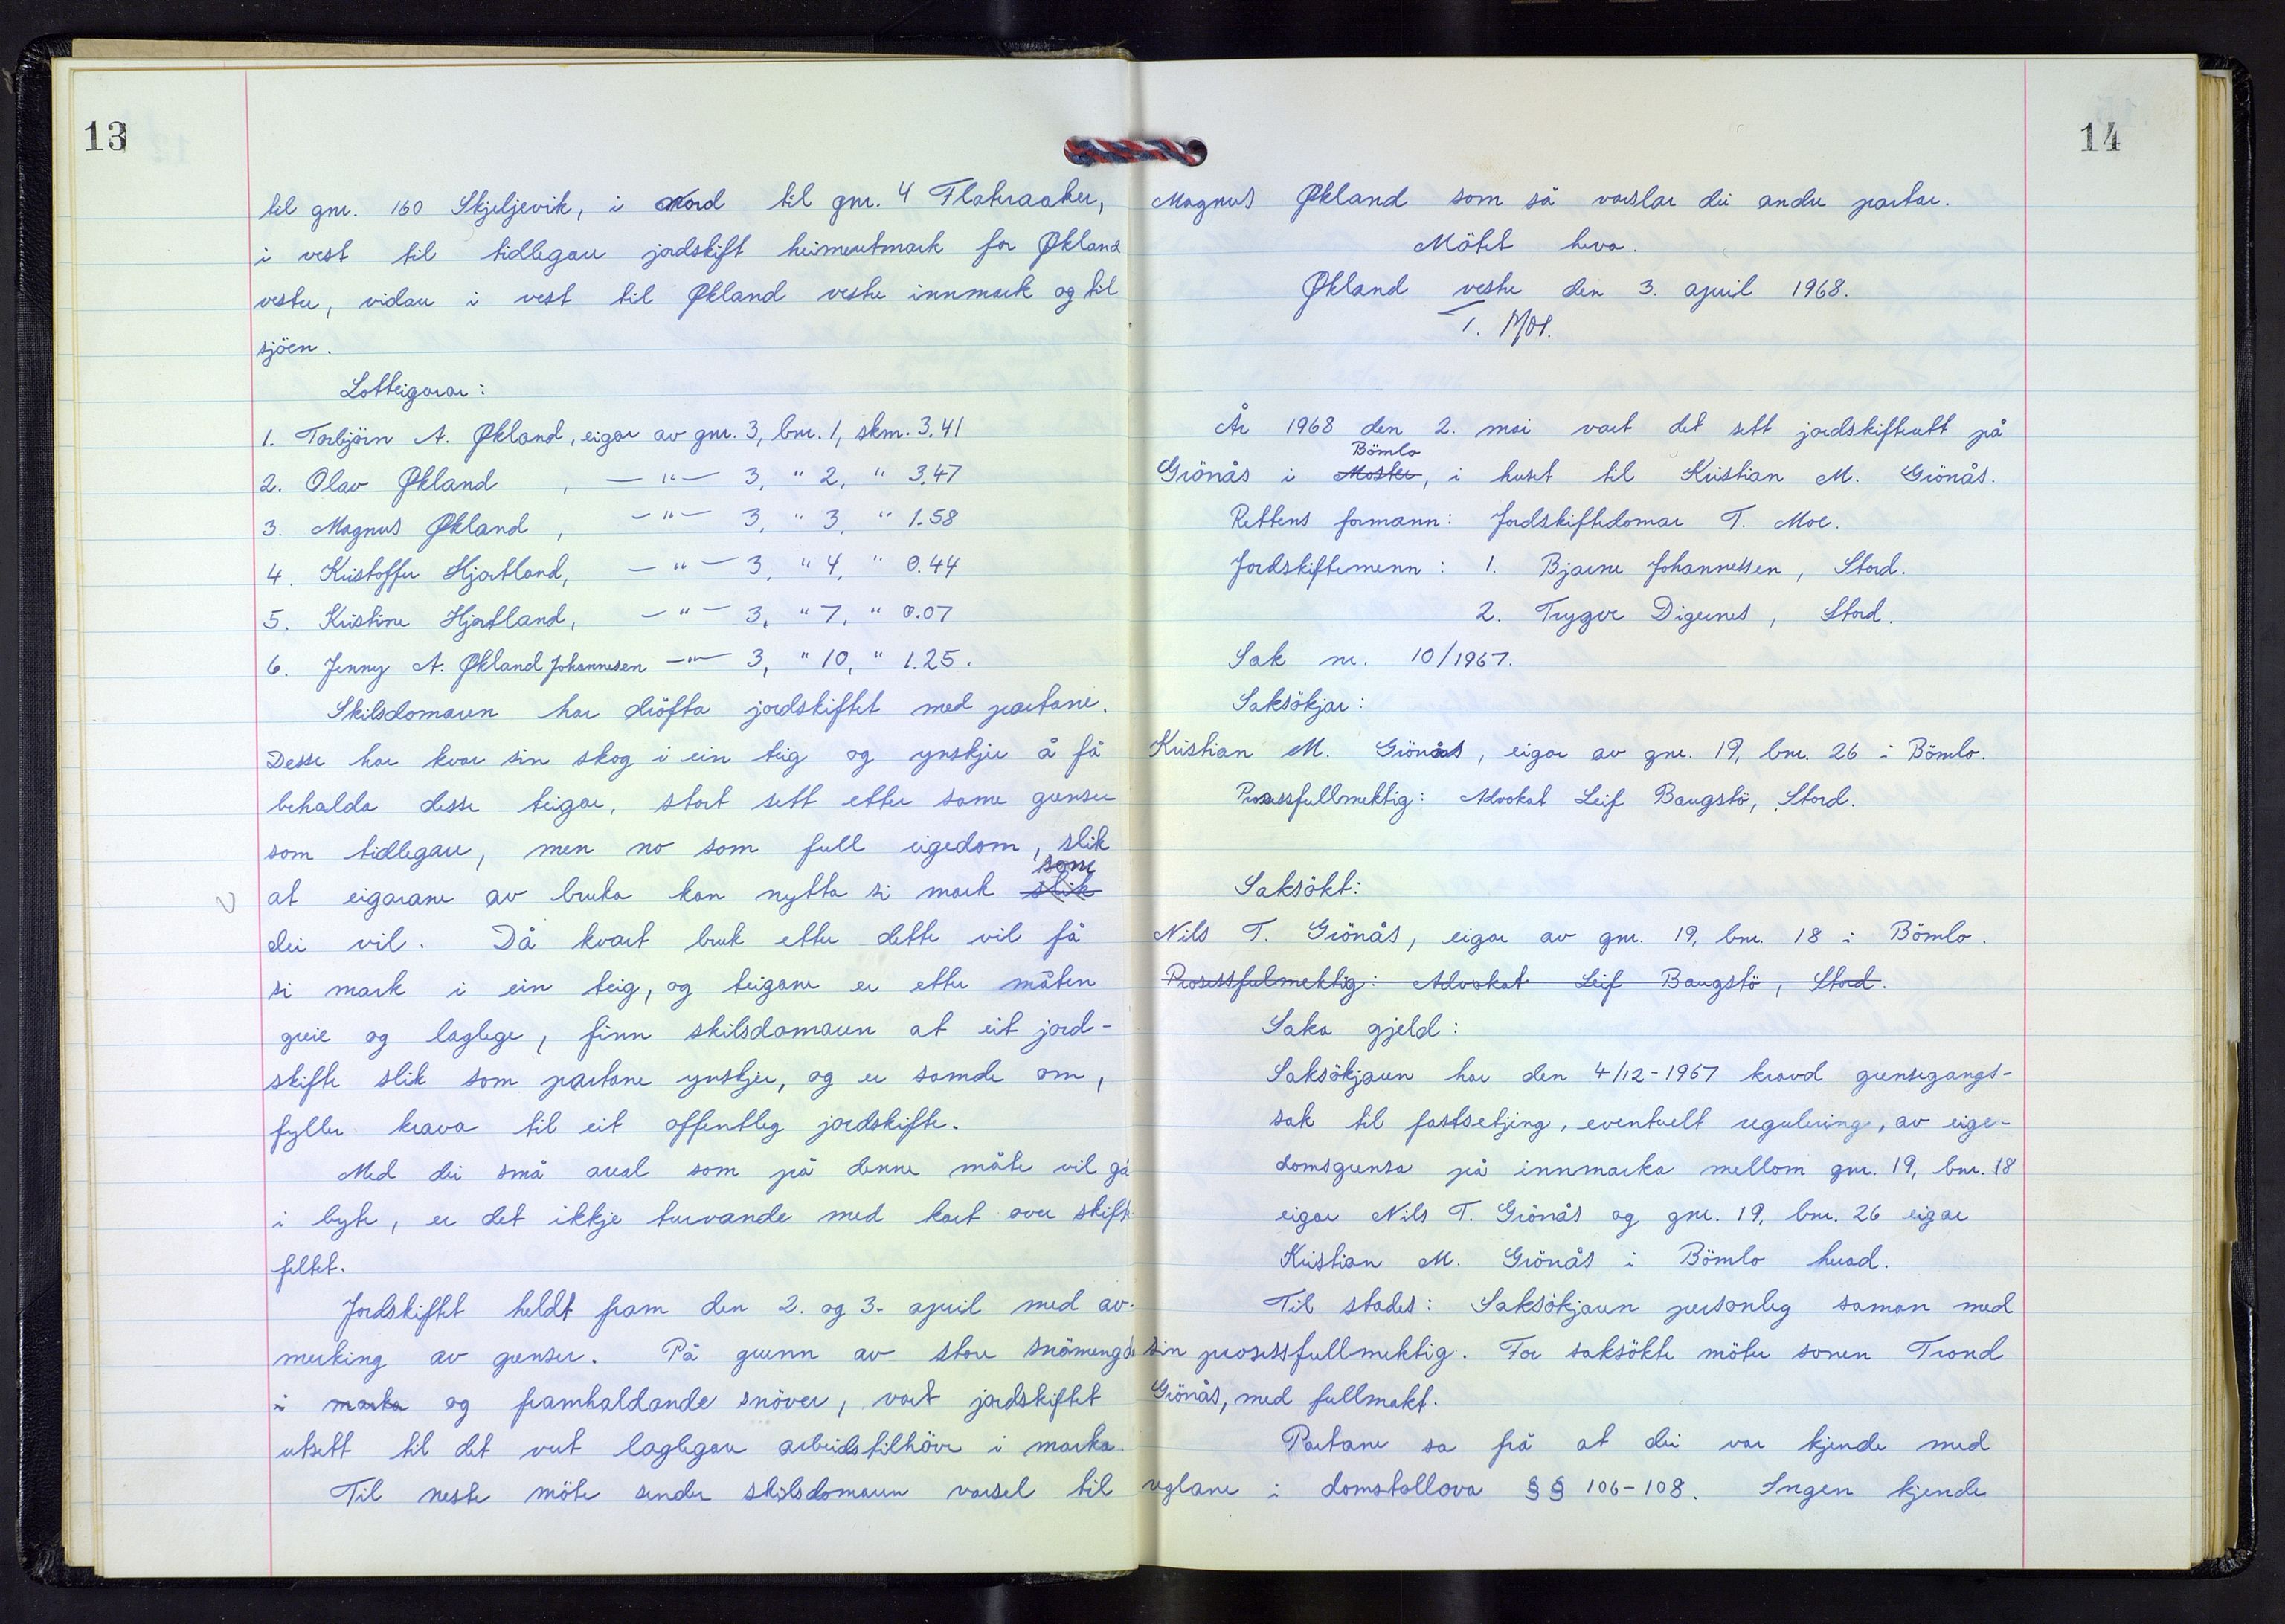 13
til gnr. 160 Skjeljevik, i nord til gnr. 4 Flateraaker,
i vest til tidlegare jordskift heimeutmark for Økland
vestre, vidare i vest til Økland vestre innmark og til
sjöen.
Lotteigarar:
1. Torbjörn A. Økland, eigar av gnr. 3, bnr. 1, skm. 3.41
2. Olav Økland , — " — 3, " 2, " 3.47
3. Magnus Økland , — " — 3, " 3, " 1.58
4. Kristoffer Hjortland, — " — 3, " 4, " 0.44
5. Kristine Hjortland, — " — 3, " 7, " 0.07
6. Jenny A. Økland Johannesen — " — 3, " 10, " 1.25.
Skilsdomaren har dröfta jordskiftet med partane.
Desse har kvar sin skog i ein teig og ynskjer å få
behalda desse teigar, stort sett etter same grenser
som tidlegare, men no som full eigedom, slik
som
at eigarane av bruka kan nytta si mark slik
dei vil. Då kvart bruk etter dette vil få
si mark i ein teig, og teigane er etter måten
greie og laglege, finn skilsdomaren at eit jord-
skifte slik som partane ynskjer, og er samde om,
fyller krava til eit offentleg jordskifte.
Med dei små areal som på denne måte vil gå
i byte, er det ikkje turvande med kart over skifte
feltet.
Jordskiftet heldt fram den 2. og 3. april med av-
merking av grenser. På grunn av store snömengde
i marka og framhaldande snöver, vart jordskiftet
utsett til det vert laglegare arbeidstilhöve i marka.
Til neste möte sender skilsdomaren varsel til
14
Magnus Økland som så varslar dei andre partar.
Mötet heva.
Økland vestre den 3. april 1968.
T. Moe.
År 1968 den 2. mai vart det sett jordskifterett på
Bömlo
Grönås i Moster, i huset til Kristian M. Grönås.
Rettens formann: Jordskiftedomar T. Moe.
Jordskiftemenn: 1. Bjarne Johannessen, Stord.
2. Trygve Digernes, Stord.
Sak nr. 10/1967.
Saksökjar:
Kristian M. Grönås, eigar av gnr. 19, bnr. 26 i Bömlo.
Prosessfullmektig: Advokat Leif Baugstö, Stord.
Saksökt:
Nils T. Grönås, eigar av gnr. 19, bnr. 18 i Bömlo.
Prosessfulmektig: Advokat Leif Baugstö, Stord.
Saka gjeld:
Saksökjaren har den 4/12-1967 kravd grensegangs-
sak til fastsetjing, eventuelt regulering, av eige-
domsgrensa på innmarka mellom gnr. 19, bnr. 18
eigar Nils T. Grönås og gnr. 19, bnr. 26 eigar
Kristian M. Grönås i Bömlo herad.
Til stades: Saksökjaren personleg saman med
sin prosessfullmektig. For saksökte möter sonen Trond
Grönås, med fullmakt.
Partane sa frå at dei var kjende med
reglane i domstollova §§ 106-108. Ingen kjende